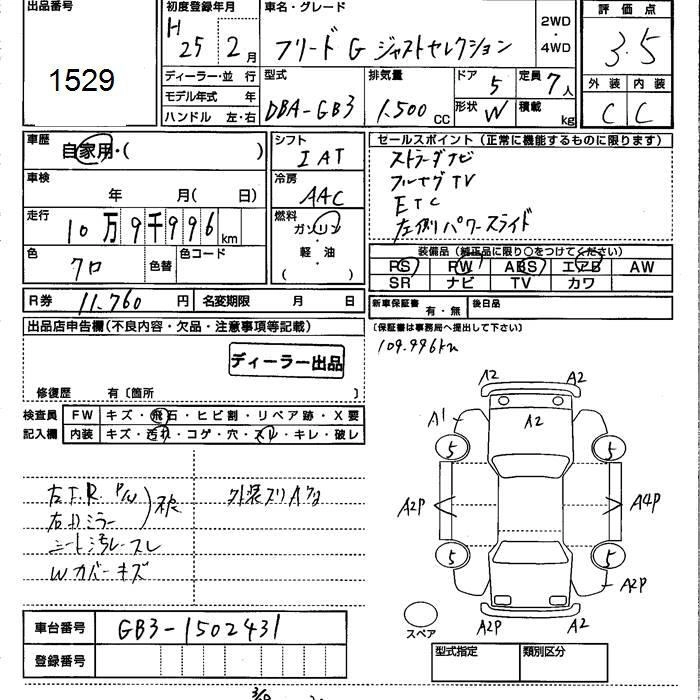 出品番号
1529
初度登録年月
H 25 2月
車名・グレード
フリード G ジャストセレクション
2WD
・
4WD
評価点
3.5
ディーラー・並 行
モデル年式 年
ハンドル 左・右
型式
DBA-GB3
排気量
1.500 CC
ドア
5
形状
W
定員
7人
積載
kg
外装 内装
C C
車歴
自家用・( )
車検
年 月( 日)
走行
10万9千996km
色
クロ
色替
色コード
シフト
IAT
冷房
AAC
燃料
ガソリン
・
軽 油
( )
セールスポイント(正常に機能するものに限ります)
ストラーダナビ
フルセグTV
ETC
左側パワースライド
装備品(純正品に限り○をつけてください)
PS PW ABS エアB AW
SR ナビ TV カワ
R券 11,760 円
名変期限 月 日
新車保証書 有・無
後日品
(保証書は事務局へ提出して下さい)
109.996km
出品店申告欄(不良内容・欠品・注意事項等記載)
ディーラー出品
修復歴 有〔箇所 〕
検査員
記入欄
FW キズ・飛石・ヒビ割・リペア跡・X要
内装 キズ・汚れ・コゲ・穴・スレ・キレ・破レ
右ミラー
シート汚レ・スレ
Wカバーキズ
外装スリキズ
A2 A2
A1 A2
5 5
A2P A4P
5 5
A2P
A2P A2
スペア
車台番号 GB3-1502431
登録番号
型式指定 類別区分